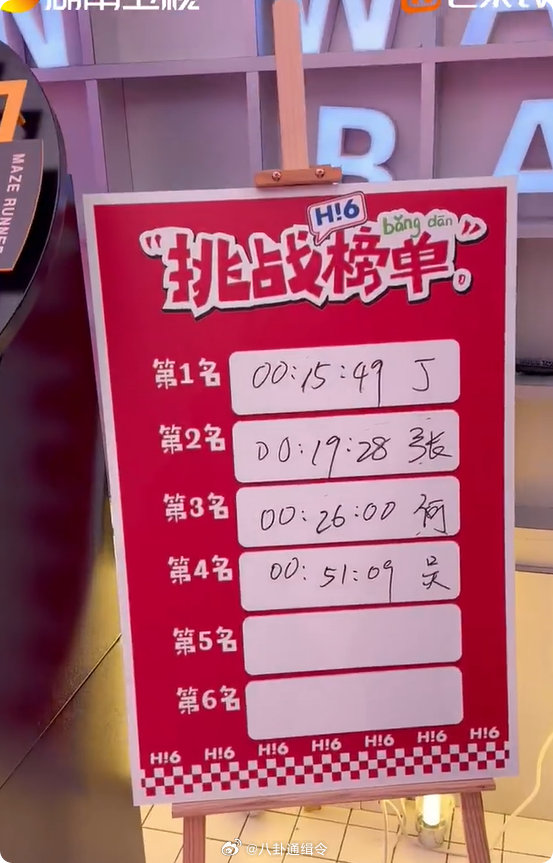 湖南卫视
芒果TV
N WA
BA
MAZE RUNNER
H!6
bǎng dān
“挑战榜单。”
第1名 00:15:49 丁
第2名 00:19:28 张
第3名 00:26:00 何
第4名 00:51:09 吴
第5名
第6名
H!6 H!6 H!6 H!6 H!6 H!6 H!6
@八卦通缉令